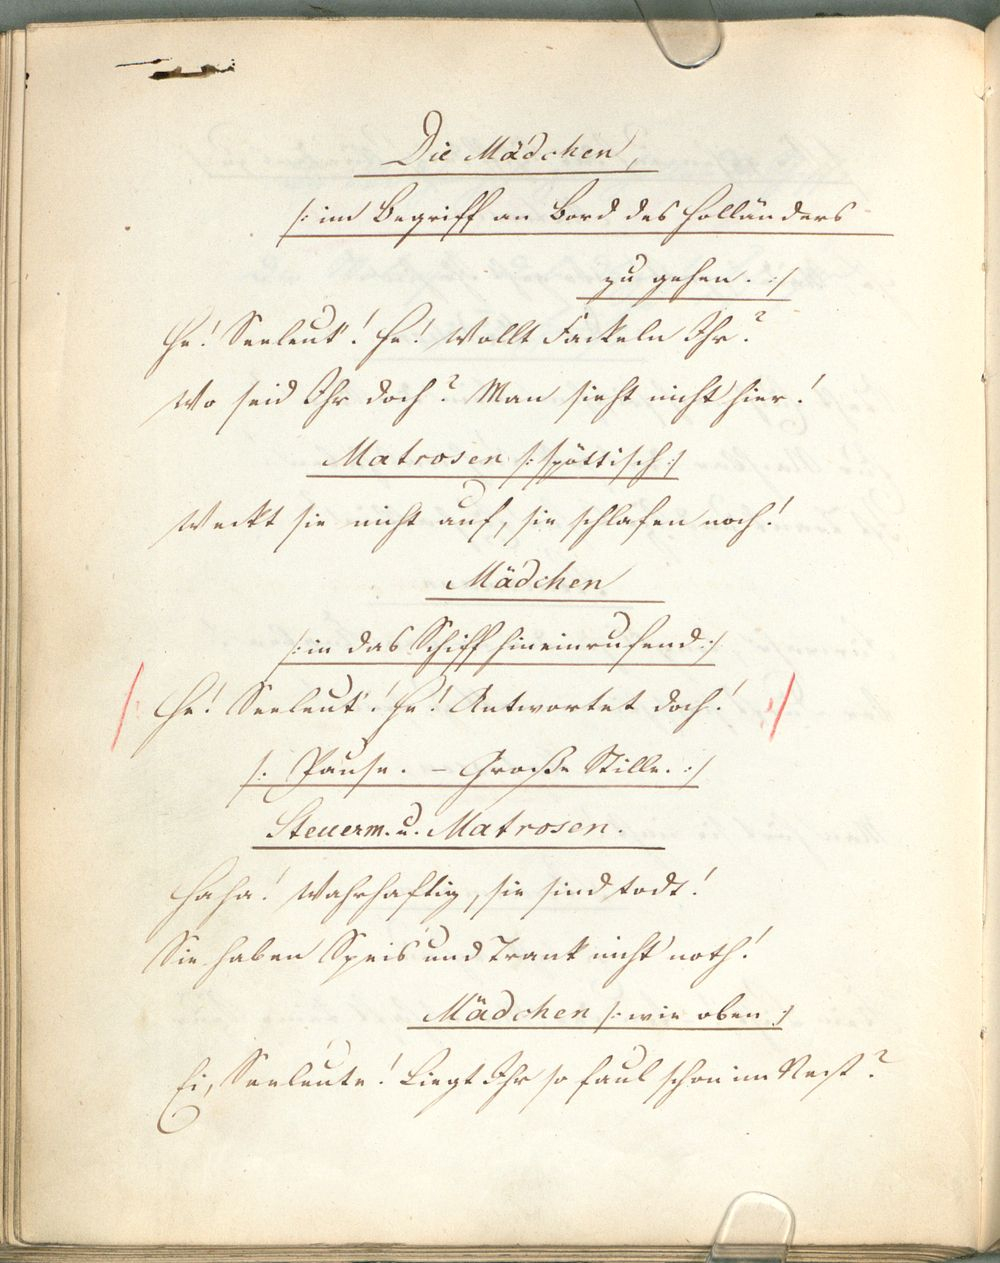 Die Mädchen,
/: im Begriff an Bord des Holländers
zu gehen. :/
He! Seeleut'! He! Wollt Fackeln Ihr?
Wo seid Ihr doch? Man sieht nicht hier!
Matrosen /: spöttisch :/
Weckt sie nicht auf, sie schlafen noch!
Mädchen
/: in das Schiff hineinrufend :/
He! Seeleut'! He! Antwortet doch!
/: Pause. – Große Stille. :/
Steuerm. u. Matrosen.
Haha! Wahrhaftig, sie sind todt!
Sie haben Speis' und Trank nicht noth!
Mädchen /: wie oben :/
Ei, Seeleute! Liegt Ihr so faul schon im Nest?